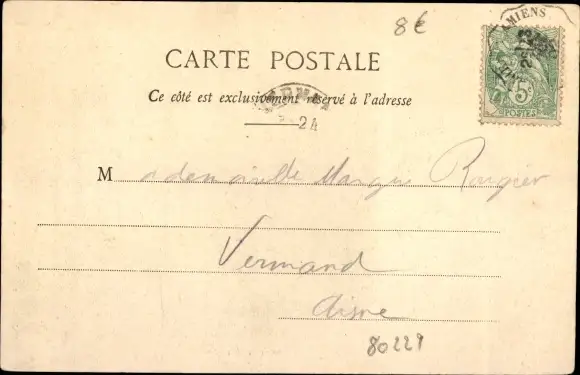 8€
AMIENS
5c
POSTES
CARTE POSTALE
Ce côté est exclusivement réservé à l'adresse
24
Mademoiselle Rougier
Vermand
Aisne
80229